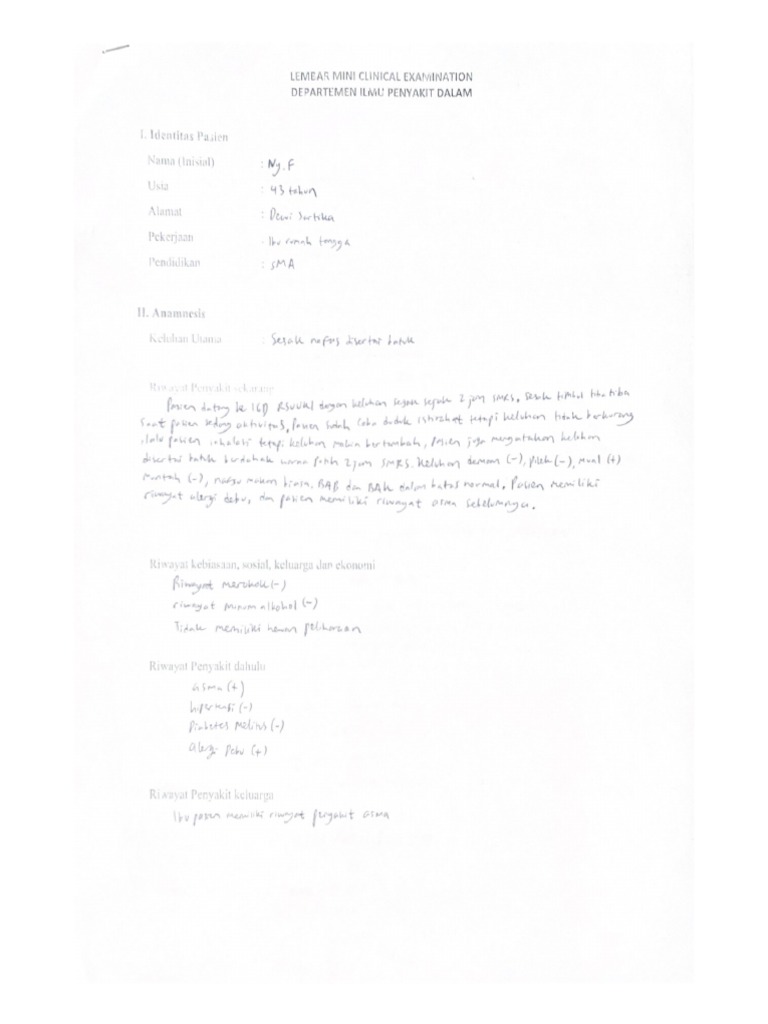 LEMBAR MINI CLINICAL EXAMINATION
DEPARTEMEN ILMU PENYAKIT DALAM
I. Identitas Pasien
Nama (Inisial) : Ny. F
Usia : 43 tahun
Alamat : Dewi Sartika
Pekerjaan : Ibu rumah tangga
Pendidikan : SMA
II. Anamnesis
Keluhan Utama : Sesak nafas disertai batuk
Riwayat Penyakit sekarang
Pasien datang ke IGD dengan keluhan sesak sejak 2 jam SMRS. Sesak timbul tiba tiba
saat pasien sedang aktivitas, Pasien sudah coba duduk istirahat tetapi keluhan tidak berkurang
, lalu pasien inhalasi tetapi keluhan makin bertambah, Pasien juga mengatakan keluhan
disertai batuk berdahak warna putih 2 jam SMRS. Keluhan demam (-), pilek (-), mual (+)
muntah (-), nafsu makan biasa. BAB dan BAK dalam batas normal. Pasien memiliki
riwayat alergi debu, dan pasien memiliki riwayat asma sebelumnya.
Riwayat kebiasaan, sosial, keluarga dan ekonomi
Riwayat merokok (-)
riwayat minum alkohol (-)
Tidak memiliki hewan peliharaan
Riwayat Penyakit dahulu
asma (+)
hipertensi (-)
Diabetes Melitus (-)
alergi Debu (+)
Riwayat Penyakit keluarga
Ibu pasien memiliki riwayat penyakit asma